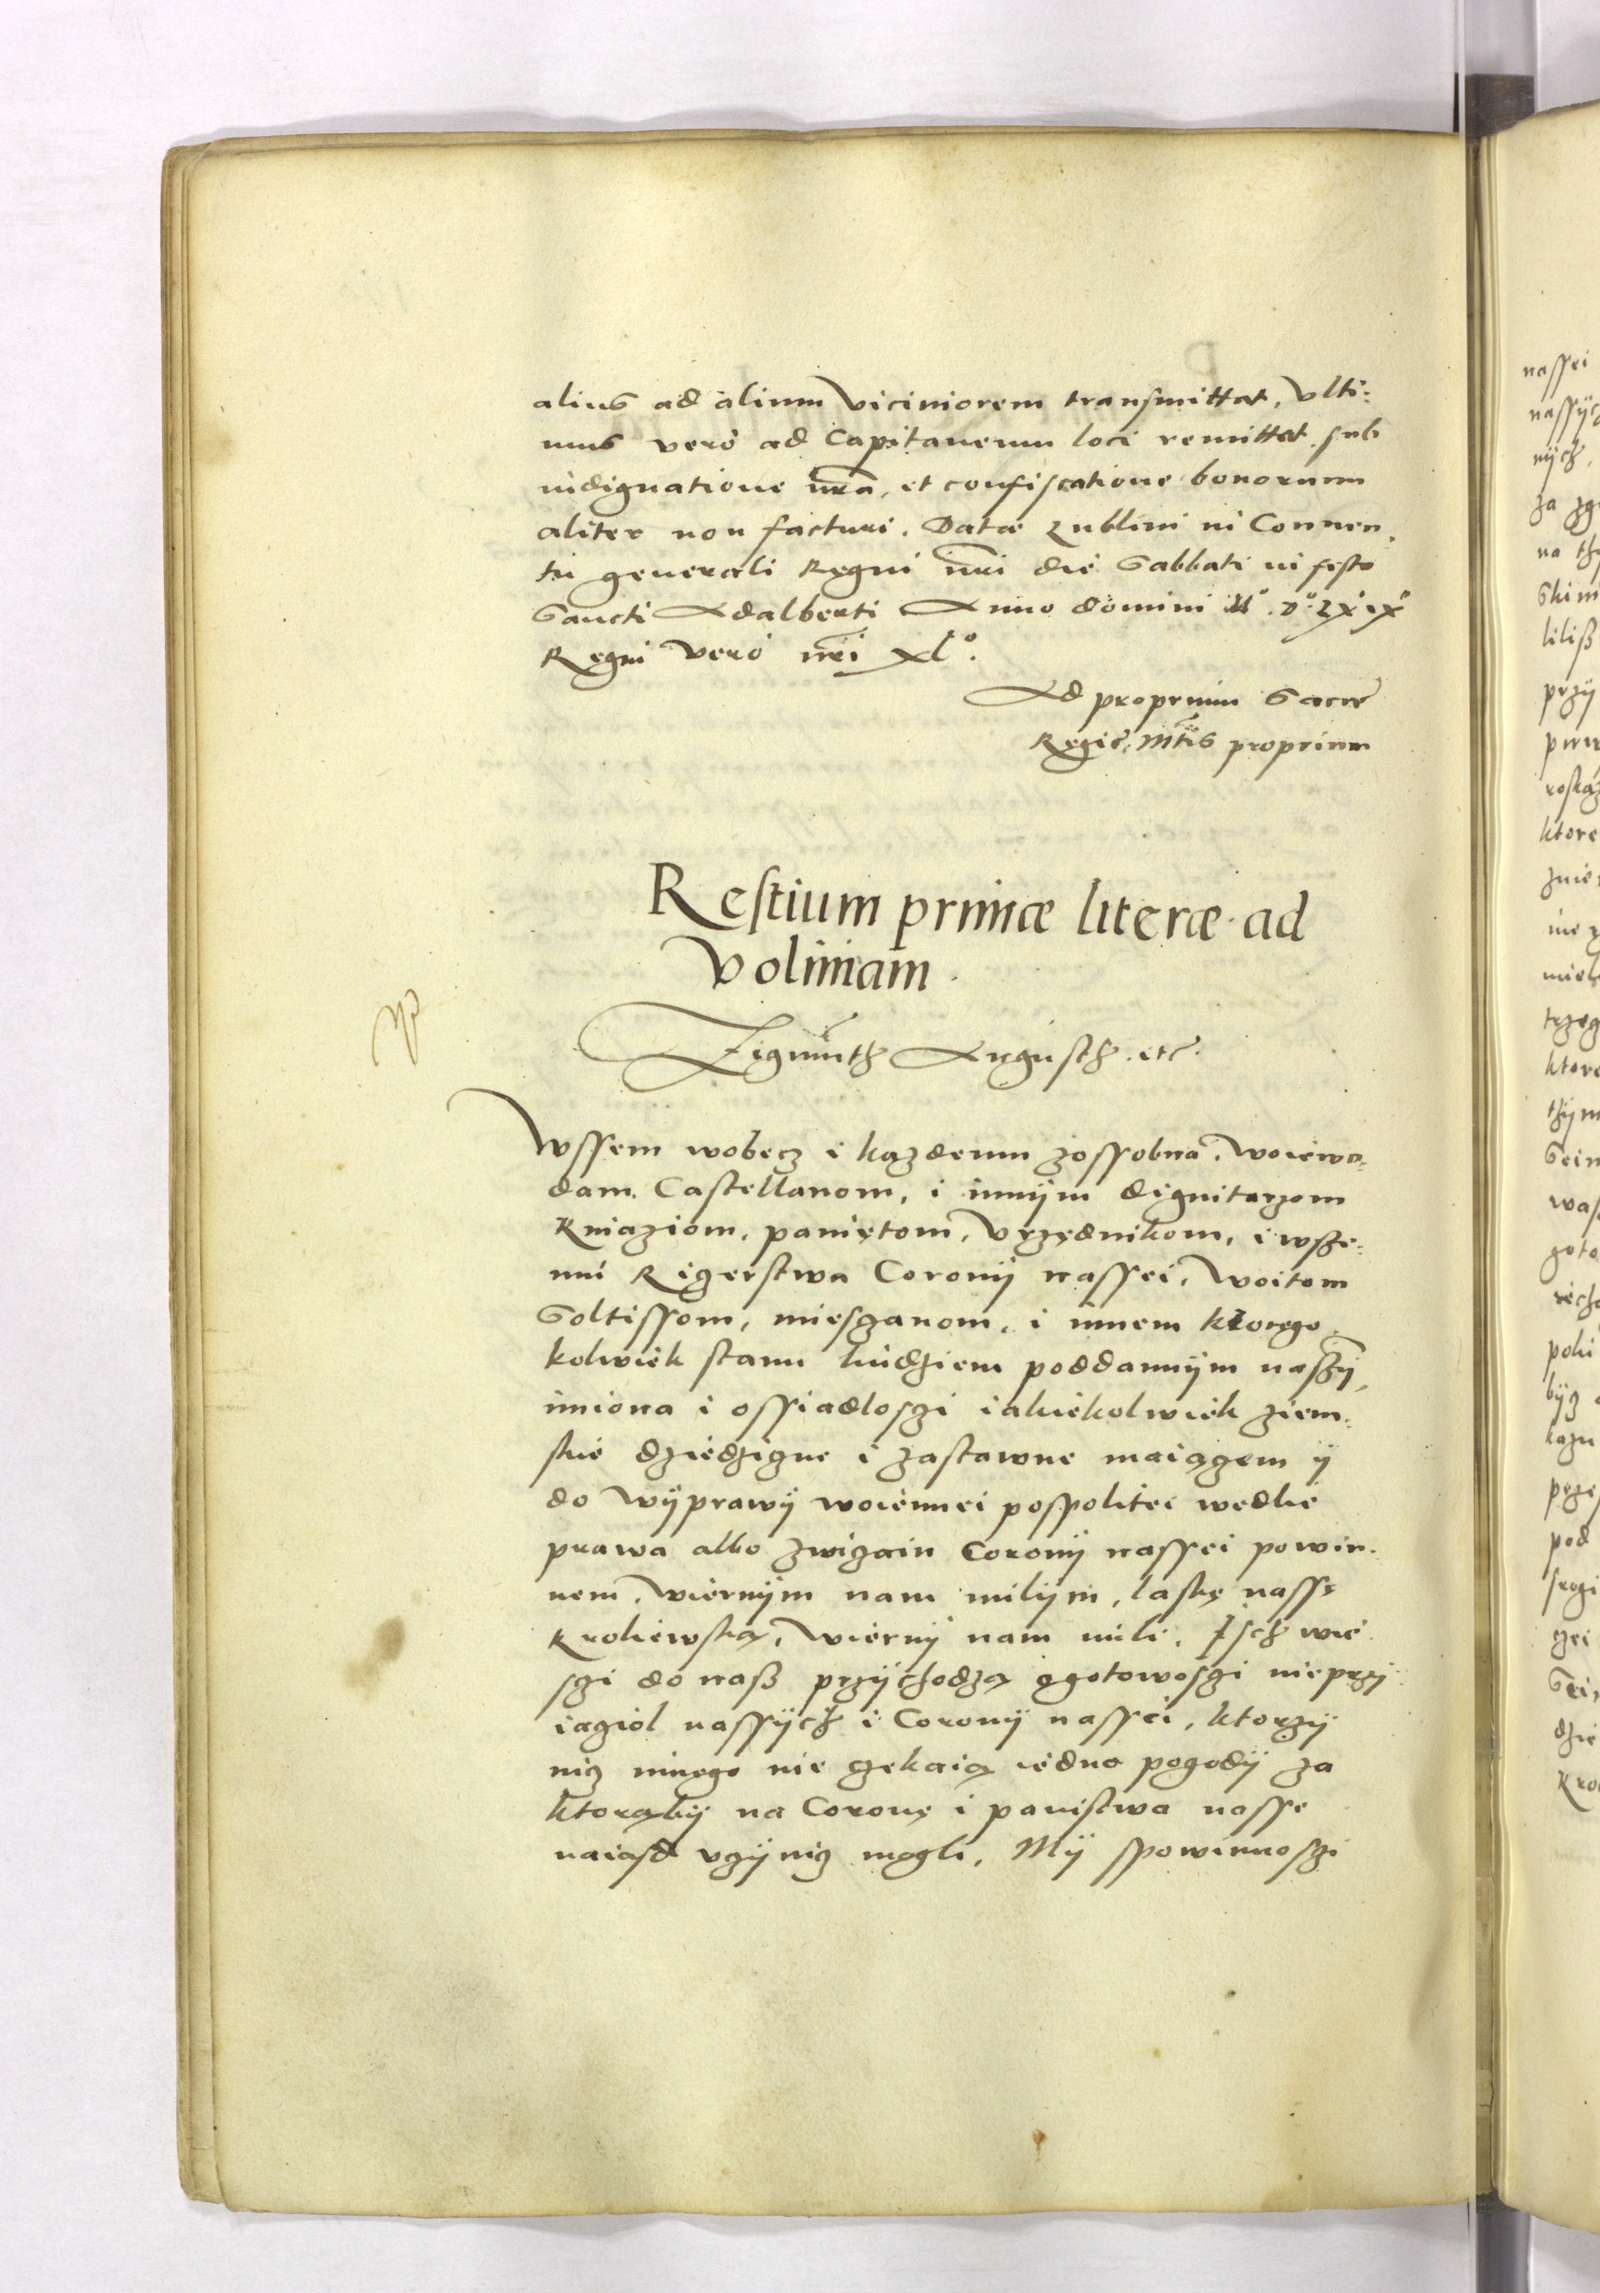 alius ad alium viciniorem transmittat, Vlti-
mus vero ad Capitaneum loci remittat sub
indignatione nra, et confiscatione bonorum
aliter non facturi. Datae Lublini in Conuen-
tu generali Regni nri die Sabbati in festo
Sancti Adalberti Anno domini Mº. Dº. LXIXº
Regni vero nri XLº.
Ad proprium Sacre
Regie Mtis proprium
Restium primæ literæ ad
Voliniam.
Zigmnth Augusth etc.
Wssem wobecz i kazdemu zossobna, Woiewo-
dam Castellanom, i innÿm dignitarzom
Kniaziom, panietom, Vrzędnikom, i wsze-
mu Rizerstwa Coronÿ nassei, Woitom
Soltissom, mieszanom, i innem ktorego
kolwiek stanu ludziem poddannÿm naszÿ,
imiona i ossiadloszi iakiekolwiek ziem-
skie dziedzizne i zastawne maiązem ÿ
do wÿprawÿ woiennei pospolitei wedlie
prawa albo zwizaiu Coronÿ nassei powin-
nem, wiernÿm nam milÿm, laskę nassę
Kroliewską, Wiernÿ nam mili, Isch wie
szi do naß przÿchodzą ogotowoszi nieprzÿ
iaziol nassÿch i Coronÿ nassei, ktorzÿ
niz innego nie czekaią iedno pogodÿ za
ktorąbÿ na Coronę i panistwa nasse
naiasd vzÿniz mogli, Mÿ spowinnoszi
nassei
nassÿc
nÿch,
za zg
na th
liliß
przÿ
ktore
ktore
thÿm
goto
poki
bÿz
pod